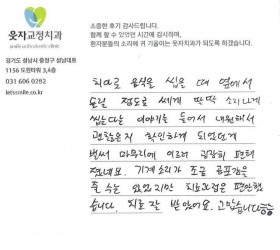 웃자교정치과
smile orthodontic clinic
경기도 성남시 중원구 성남대로
1156 도원타워 3,4층
031 606 0282
letssmile.co.kr
소중한 후기 감사드립니다.
함께 할 수 있었던 시간에 감사하며,
환자분들의 소리에 귀 기울이는 웃자치과가 되도록 하겠습니다.
치아로 음식을 씹을 때 옆에서
들릴 정도로 세게 딱딱 소리나게
씹는다는 이야기를 들어서 내원해서
괜찮은지 확인하게 되었는데
벌써 마무리에 이르러 굉장히 편해
졌네요. 기계소리가 조금 공포감을
줄 수는 있겠지만 치료과정은 편안했
습니다. 치료 잘 받았어요. 고맙습니다